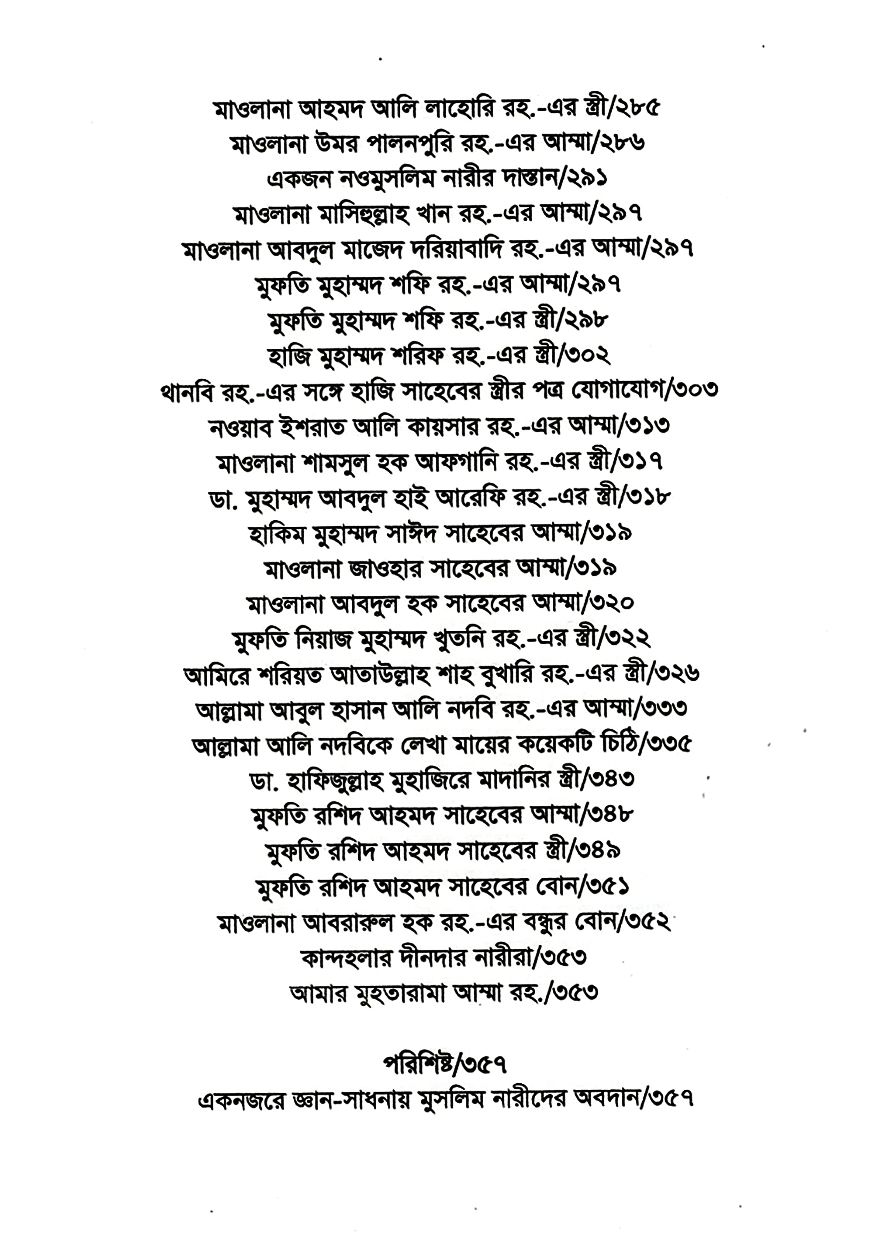 মাওলানা আহমদ আলি লাহোরি রহ.-এর স্ত্রী/২৮৫
মাওলানা উমর পালনপুরি রহ.-এর আম্মা/২৮৬
একজন নওমুসলিম নারীর দাস্তান/২৯১
মাওলানা মাসিহুল্লাহ খান রহ.-এর আম্মা/২৯৭
মাওলানা আবদুল মাজেদ দরিয়াবাদি রহ.-এর আম্মা/২৯৭
মুফতি মুহাম্মদ শফি রহ.-এর আম্মা/২৯৭
মুফতি মুহাম্মদ শফি রহ.-এর স্ত্রী/২৯৮
হাজি মুহাম্মদ শরিফ রহ.-এর স্ত্রী/৩০২
থানবি রহ.-এর সঙ্গে হাজি সাহেবের স্ত্রীর পত্র যোগাযোগ/৩০৩
নওয়াব ইশরাত আলি কায়সার রহ.-এর আম্মা/৩১৩
মাওলানা শামসুল হক আফগানি রহ.-এর স্ত্রী/৩১৭
ডা. মুহাম্মদ আবদুল হাই আরেফি রহ.-এর স্ত্রী/৩১৮
হাকিম মুহাম্মদ সাঈদ সাহেবের আম্মা/৩১৯
মাওলানা জাওহার সাহেবের আম্মা/৩১৯
মাওলানা আবদুল হক সাহেবের আম্মা/৩২০
মুফতি নিয়াজ মুহাম্মদ খুতনি রহ.-এর স্ত্রী/৩২২
আমিরে শরিয়ত আতাউল্লাহ শাহ বুখারি রহ.-এর স্ত্রী/৩২৬
আল্লামা আবুল হাসান আলি নদবি রহ.-এর আম্মা/৩৩৩
আল্লামা আলি নদবিকে লেখা মায়ের কয়েকটি চিঠি/৩৩৫
ডা. হাফিজুল্লাহ মুহাজিরে মাদানির স্ত্রী/৩৪৩
মুফতি রশিদ আহমদ সাহেবের আম্মা/৩৪৮
মুফতি রশিদ আহমদ সাহেবের স্ত্রী/৩৪৯
মুফতি রশিদ আহমদ সাহেবের বোন/৩৫১
মাওলানা আবরারুল হক রহ.-এর বন্ধুর বোন/৩৫২
কান্দহলার দীনদার নারীরা/৩৫৩
আমার মুহতারামা আম্মা রহ./৩৫৩
পরিশিষ্ট/৩৫৭
একনজরে জ্ঞান-সাধনায় মুসলিম নারীদের অবদান/৩৫৭